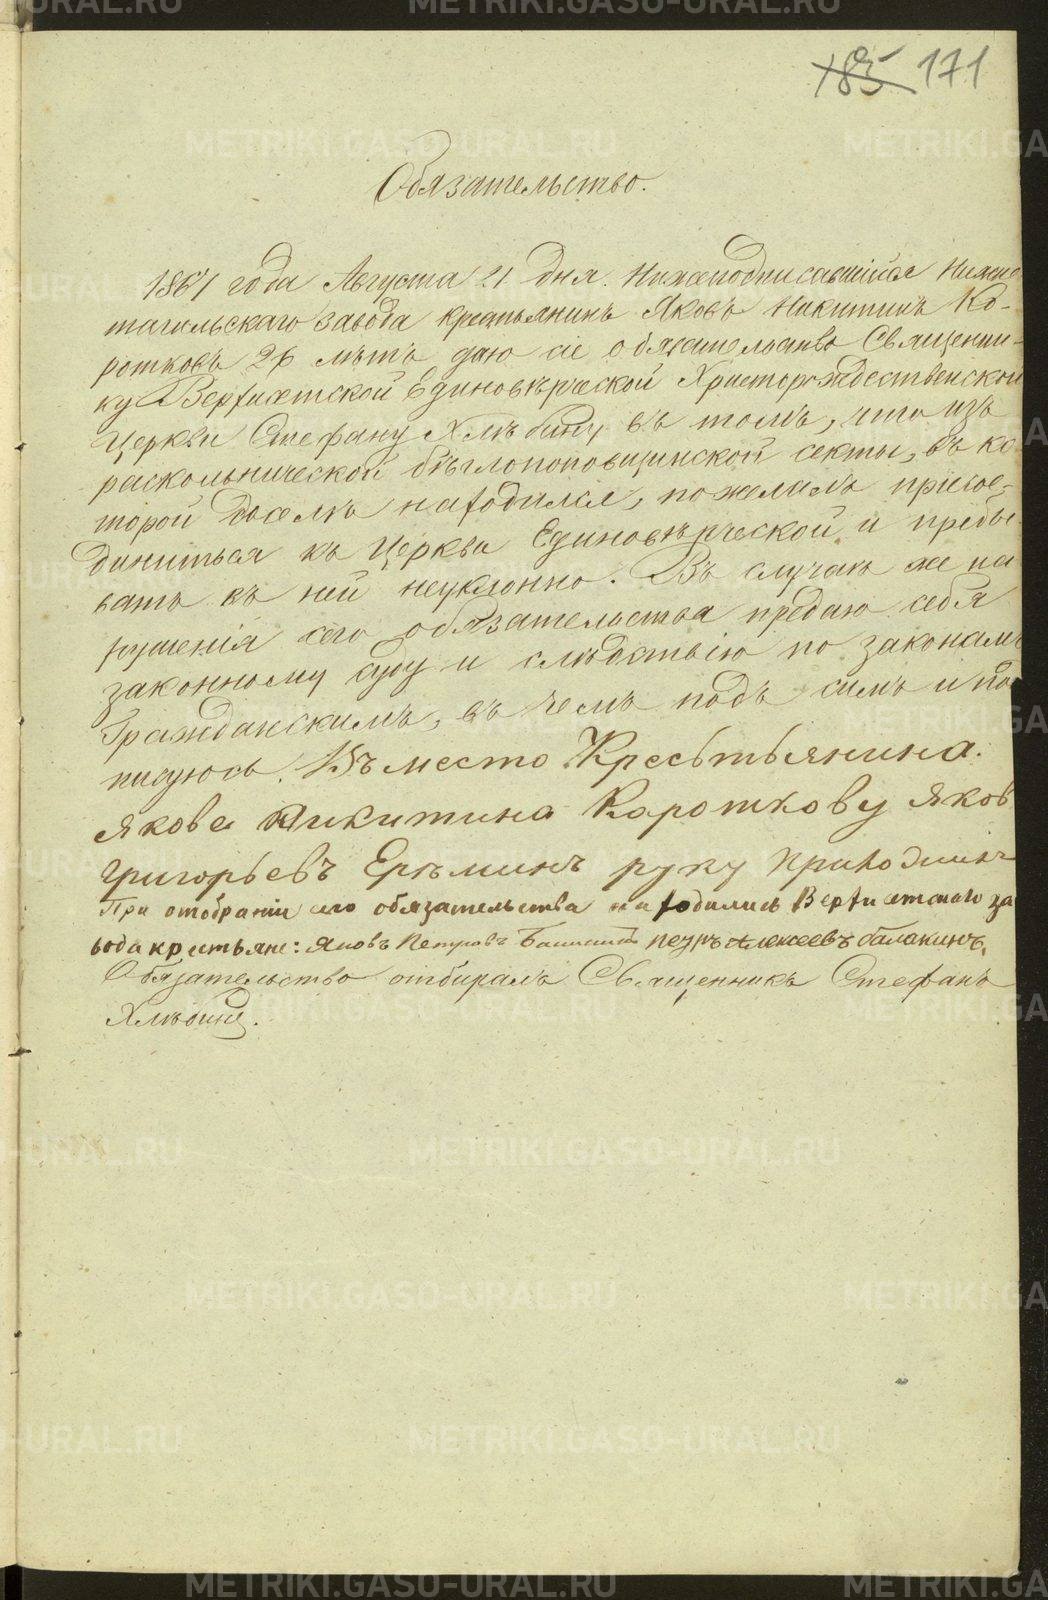 185 171
Обязательство.
1867 года Августа 21 дня. Нижеподписавшійся Нижне
тагильскаго завода крестьянинъ Яковъ Никитинъ Ко-
ротковъ 26 лѣтъ даю сіе обязательство Священни-
ку Верхнетской Единовѣрческой Христорождественской
Церкви Стефану Хлѣбину въ томъ, что изъ
раскольнической бѣглопоповщинской секты, въ ко
торой доселѣ находился, пожелалъ присое-
диниться къ Церкви Единовѣрческой и пребы-
вать къ ней неуклонно. Въ случаѣ же на
рушенія сего обязательства предаю себя
законному суду и слѣдствію по законамъ
Гражданскимъ, въ чемъ подъ симъ и под
писуюсь. Въместо Кресьтьянина.
Якова Никитина Короткову Яков
Григорьевъ Ерѣминъ руку приложилъ
При отобраніи сего обязательства находились Верхнетскаго за
вода крестьяне: Яковъ Петровъ Петръ Алексеевъ балакинъ.
Обязательство отбиралъ Священникъ Стефанъ
Хлѣбинъ.
METRIKI.GASO-URAL.RU